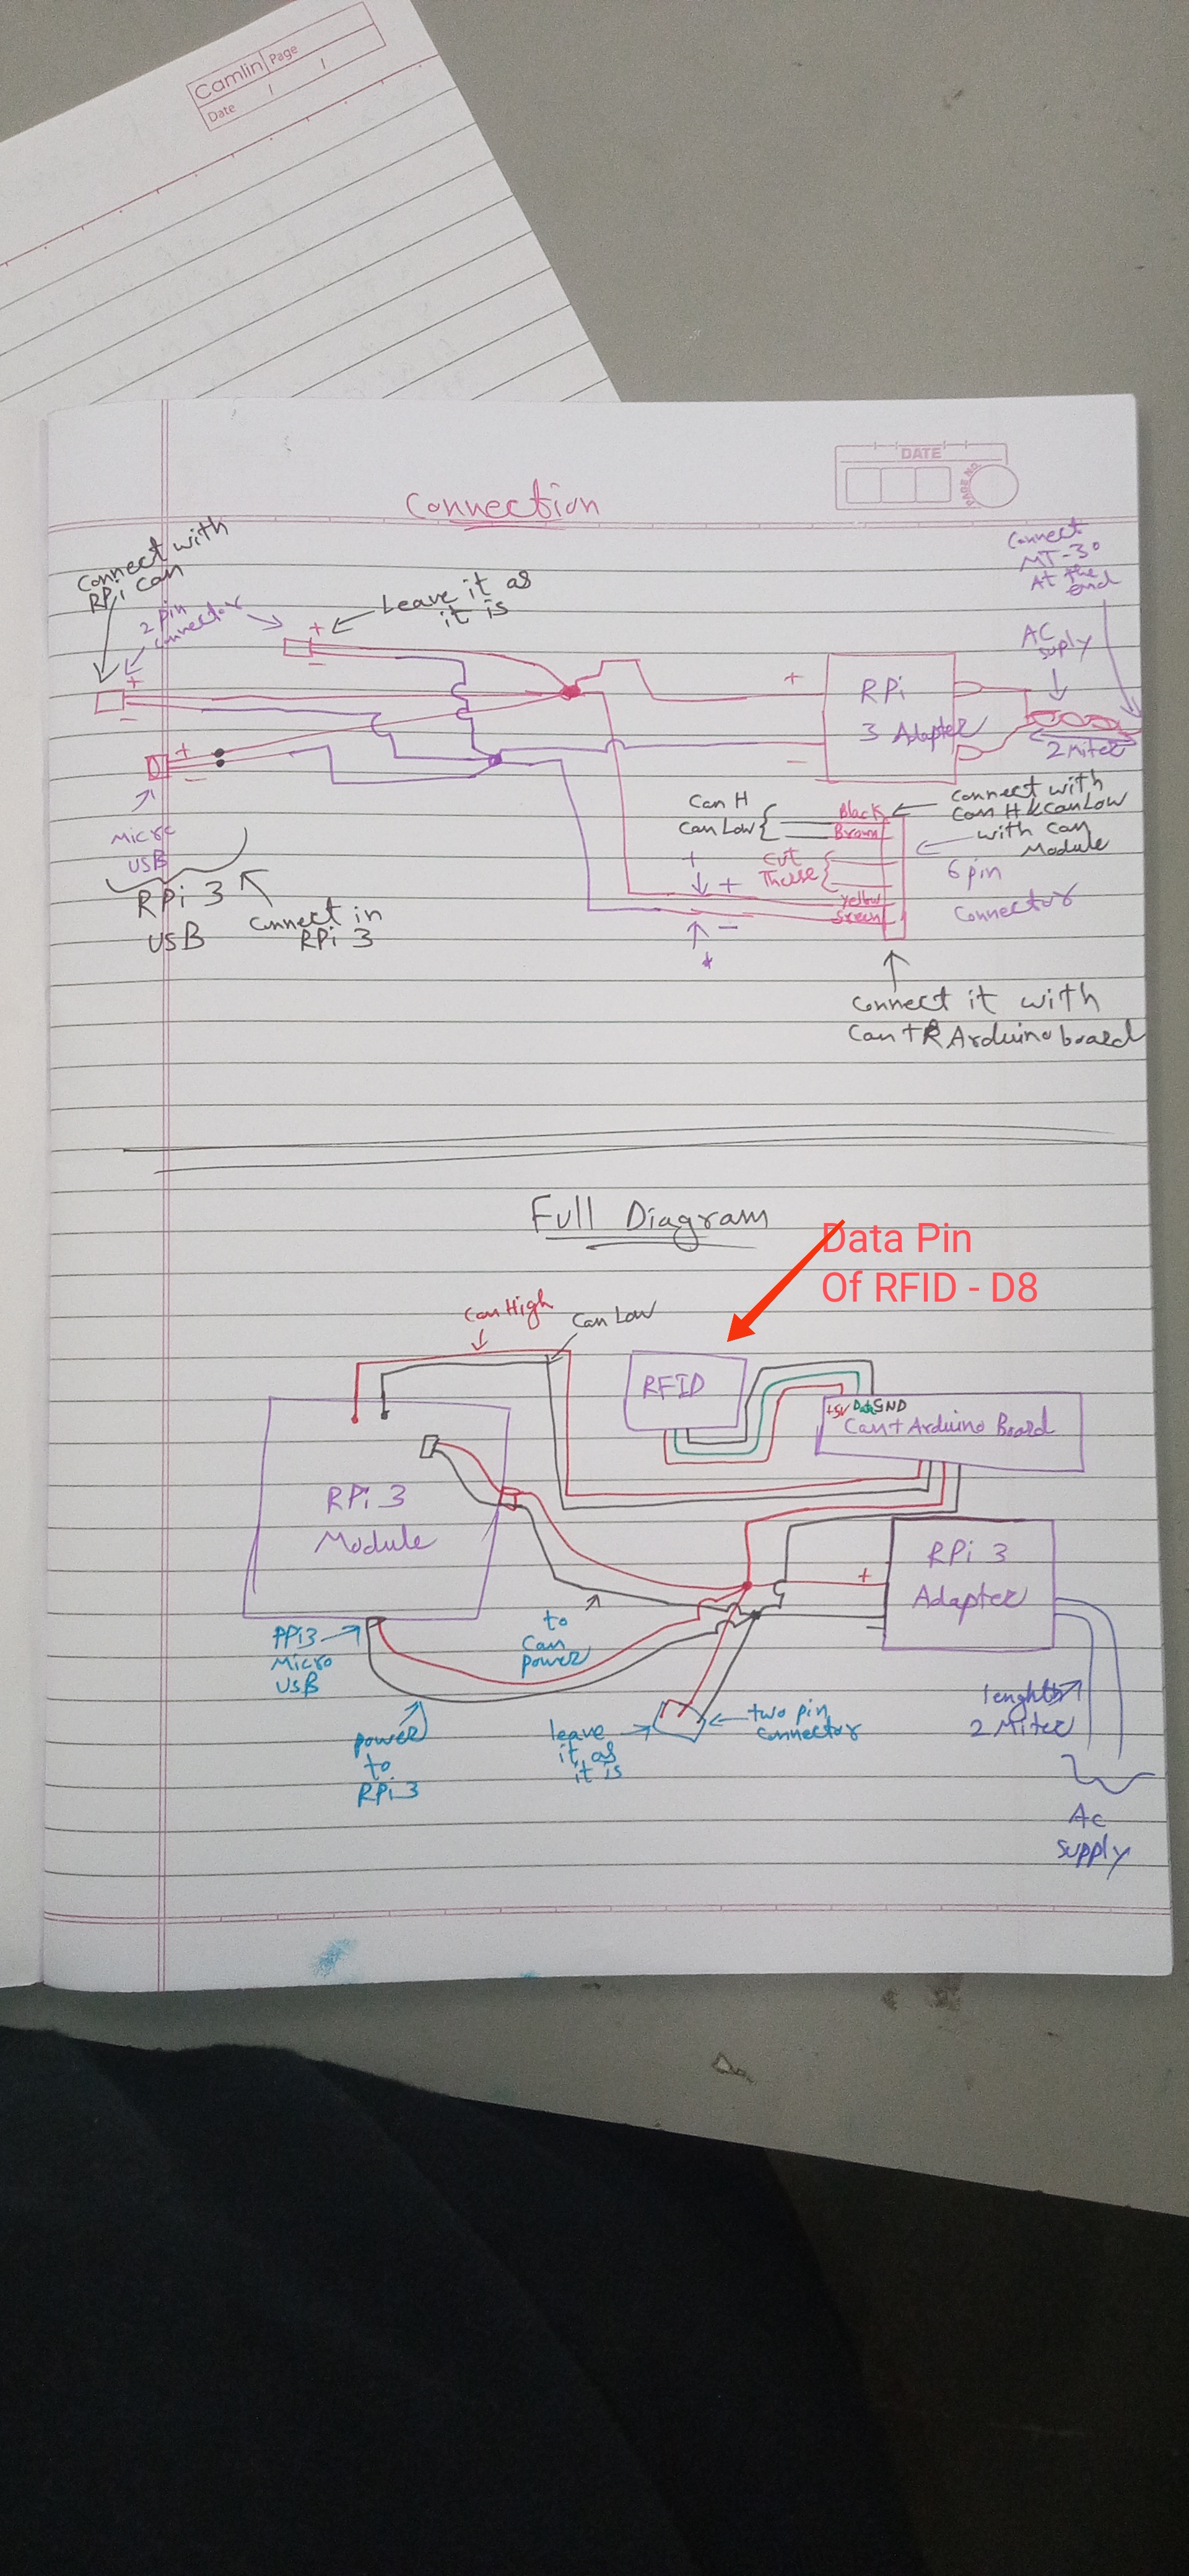 Camlin
Page
Date
DATE
PAGE NO.
Connection
Connect with
RPi can
2 pin
connector
+
-
+
-
Leave it as
it is
Connect
MT-30
At the
end
AC
suply
2 Miter
RPi
3 Adapter
+
-
+
-
Micro
USB
RPi 3
USB
Connect in
RPi 3
Can H
Can Low
Black
Brown
Connect with
Can H & Can Low
with can
Module
+
cut
These
+
Yellow
Green
-
6 pin
Connector
Connect it with
Can + R Arduino board
Full Diagram
Data Pin
Of RFID - D8
Can High
Can Low
RFID
+5V Data GND
Can + Arduino Board
RPi 3
Module
RPi 3
Adapter
+
-
PPi3
Micro
USB
to
Can
power
power
to
RPi 3
leave
it as
it is
two pin
connector
lenghth
2 Miter
Ac
supply